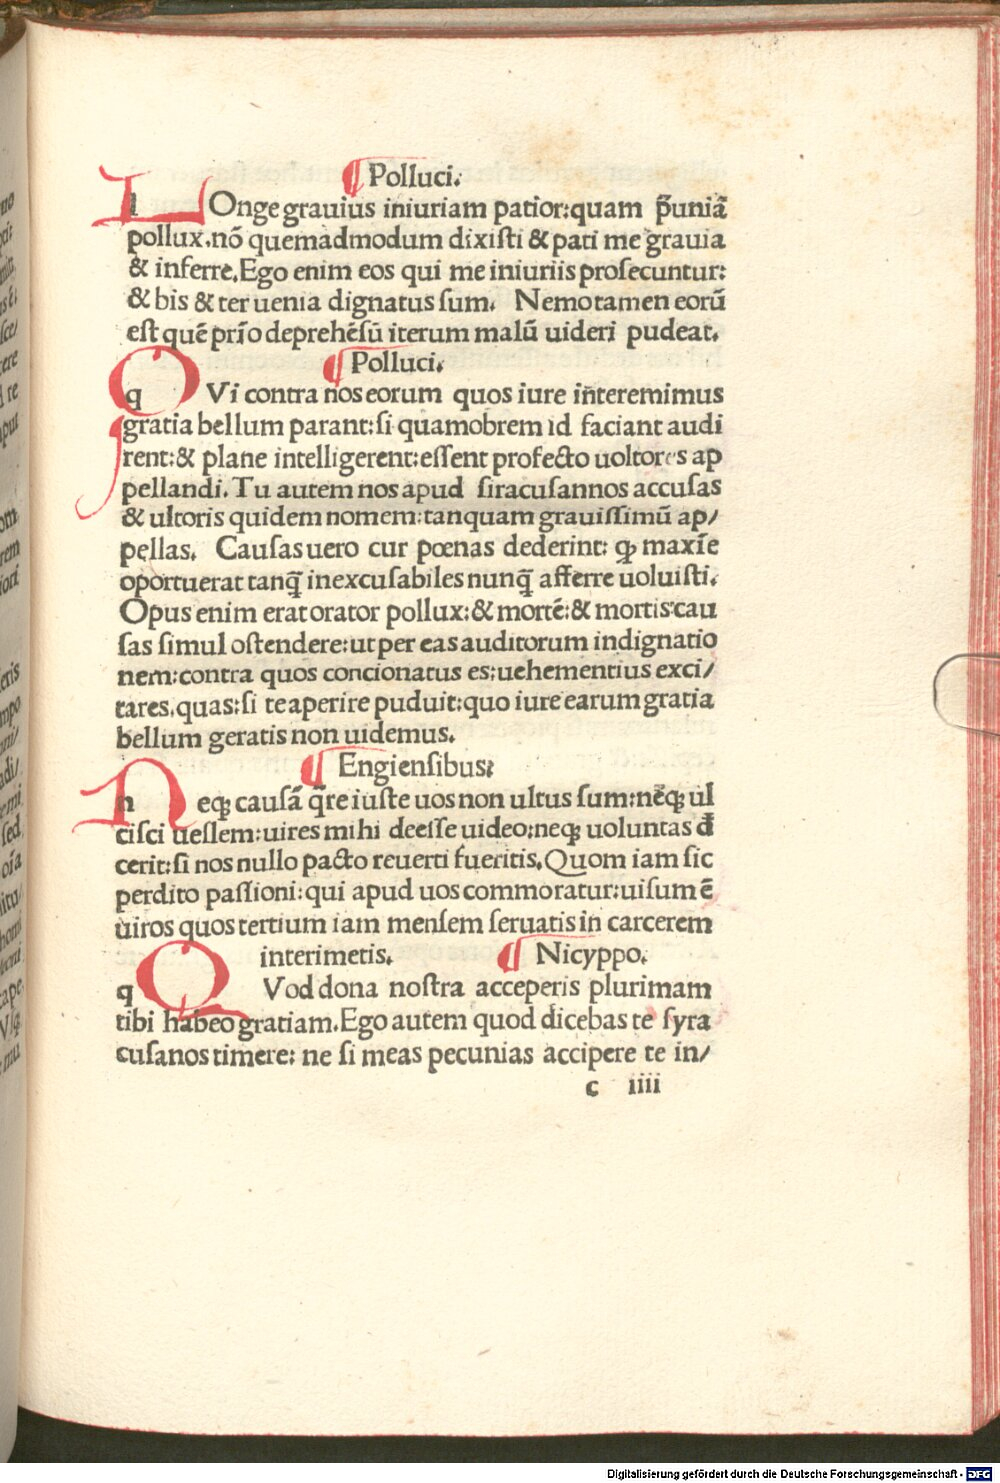 ¶ Polluci.
LOnge grauius iniuriam patior:quam p̄uniā
pollux.nō quemadmodum dixiſti & pati me grauia
& inferre.Ego enim eos qui me iniuriis proſecuntur:
& bis & ter uenia dignatus ſum. Nemo tamen eorū
eſt quē prīo deprehēſū iterum malū uideri pudeat.
¶ Polluci.
QVi contra nos eorum quos iure interemimus
gratia bellum parant:ſi quamobrem id faciant audi
rent:& plane intelligerent:eſſent profecto uoltores ap
pellandi. Tu autem nos apud ſiracuſannos accuſas
& ultoris quidem nomem:tanquam grauiſſimū ap/
pellas. Cauſas uero cur pœnas dederint: ꝙ maxīe
oportuerat tanꝗ̄ inexcuſabiles nunꝗ̄ afferre uoluiſti.
Opus enim erat orator pollux:& mortē:& mortis cau
ſas ſimul oſtendere:ut per eas auditorum indignatio
nem:contra quos concionatus es:uehementius exci/
tares.quas:ſi te aperire puduit:quo iure earum gratia
bellum geratis non uidemus.
¶ Engienſibus:
neqꝫ cauſā q̄re iuſte uos non ultus ſum:nēqꝫ ul
ciſci ueſlem:uires mihi deeſſe uideo:neqꝫ uoluntas đ
cerit:ſi nos nullo pacto reuerti fueritis.Quom iam ſic
perdito paſſioni:qui apud uos commoratur:uiſum ē
uiros quos tertium iam menſem ſeruatis in carcerem
interimetis. ¶ Nicyppo.
QVod dona noſtra acceperis plurimam
tibi habeo gratiam.Ego autem quod dicebas te ſyra
cuſanos timere: ne ſi meas pecunias accipere te in/
c iiii
Digitalisierung gefördert durch die Deutsche Forschungsgemeinschaft - DFG